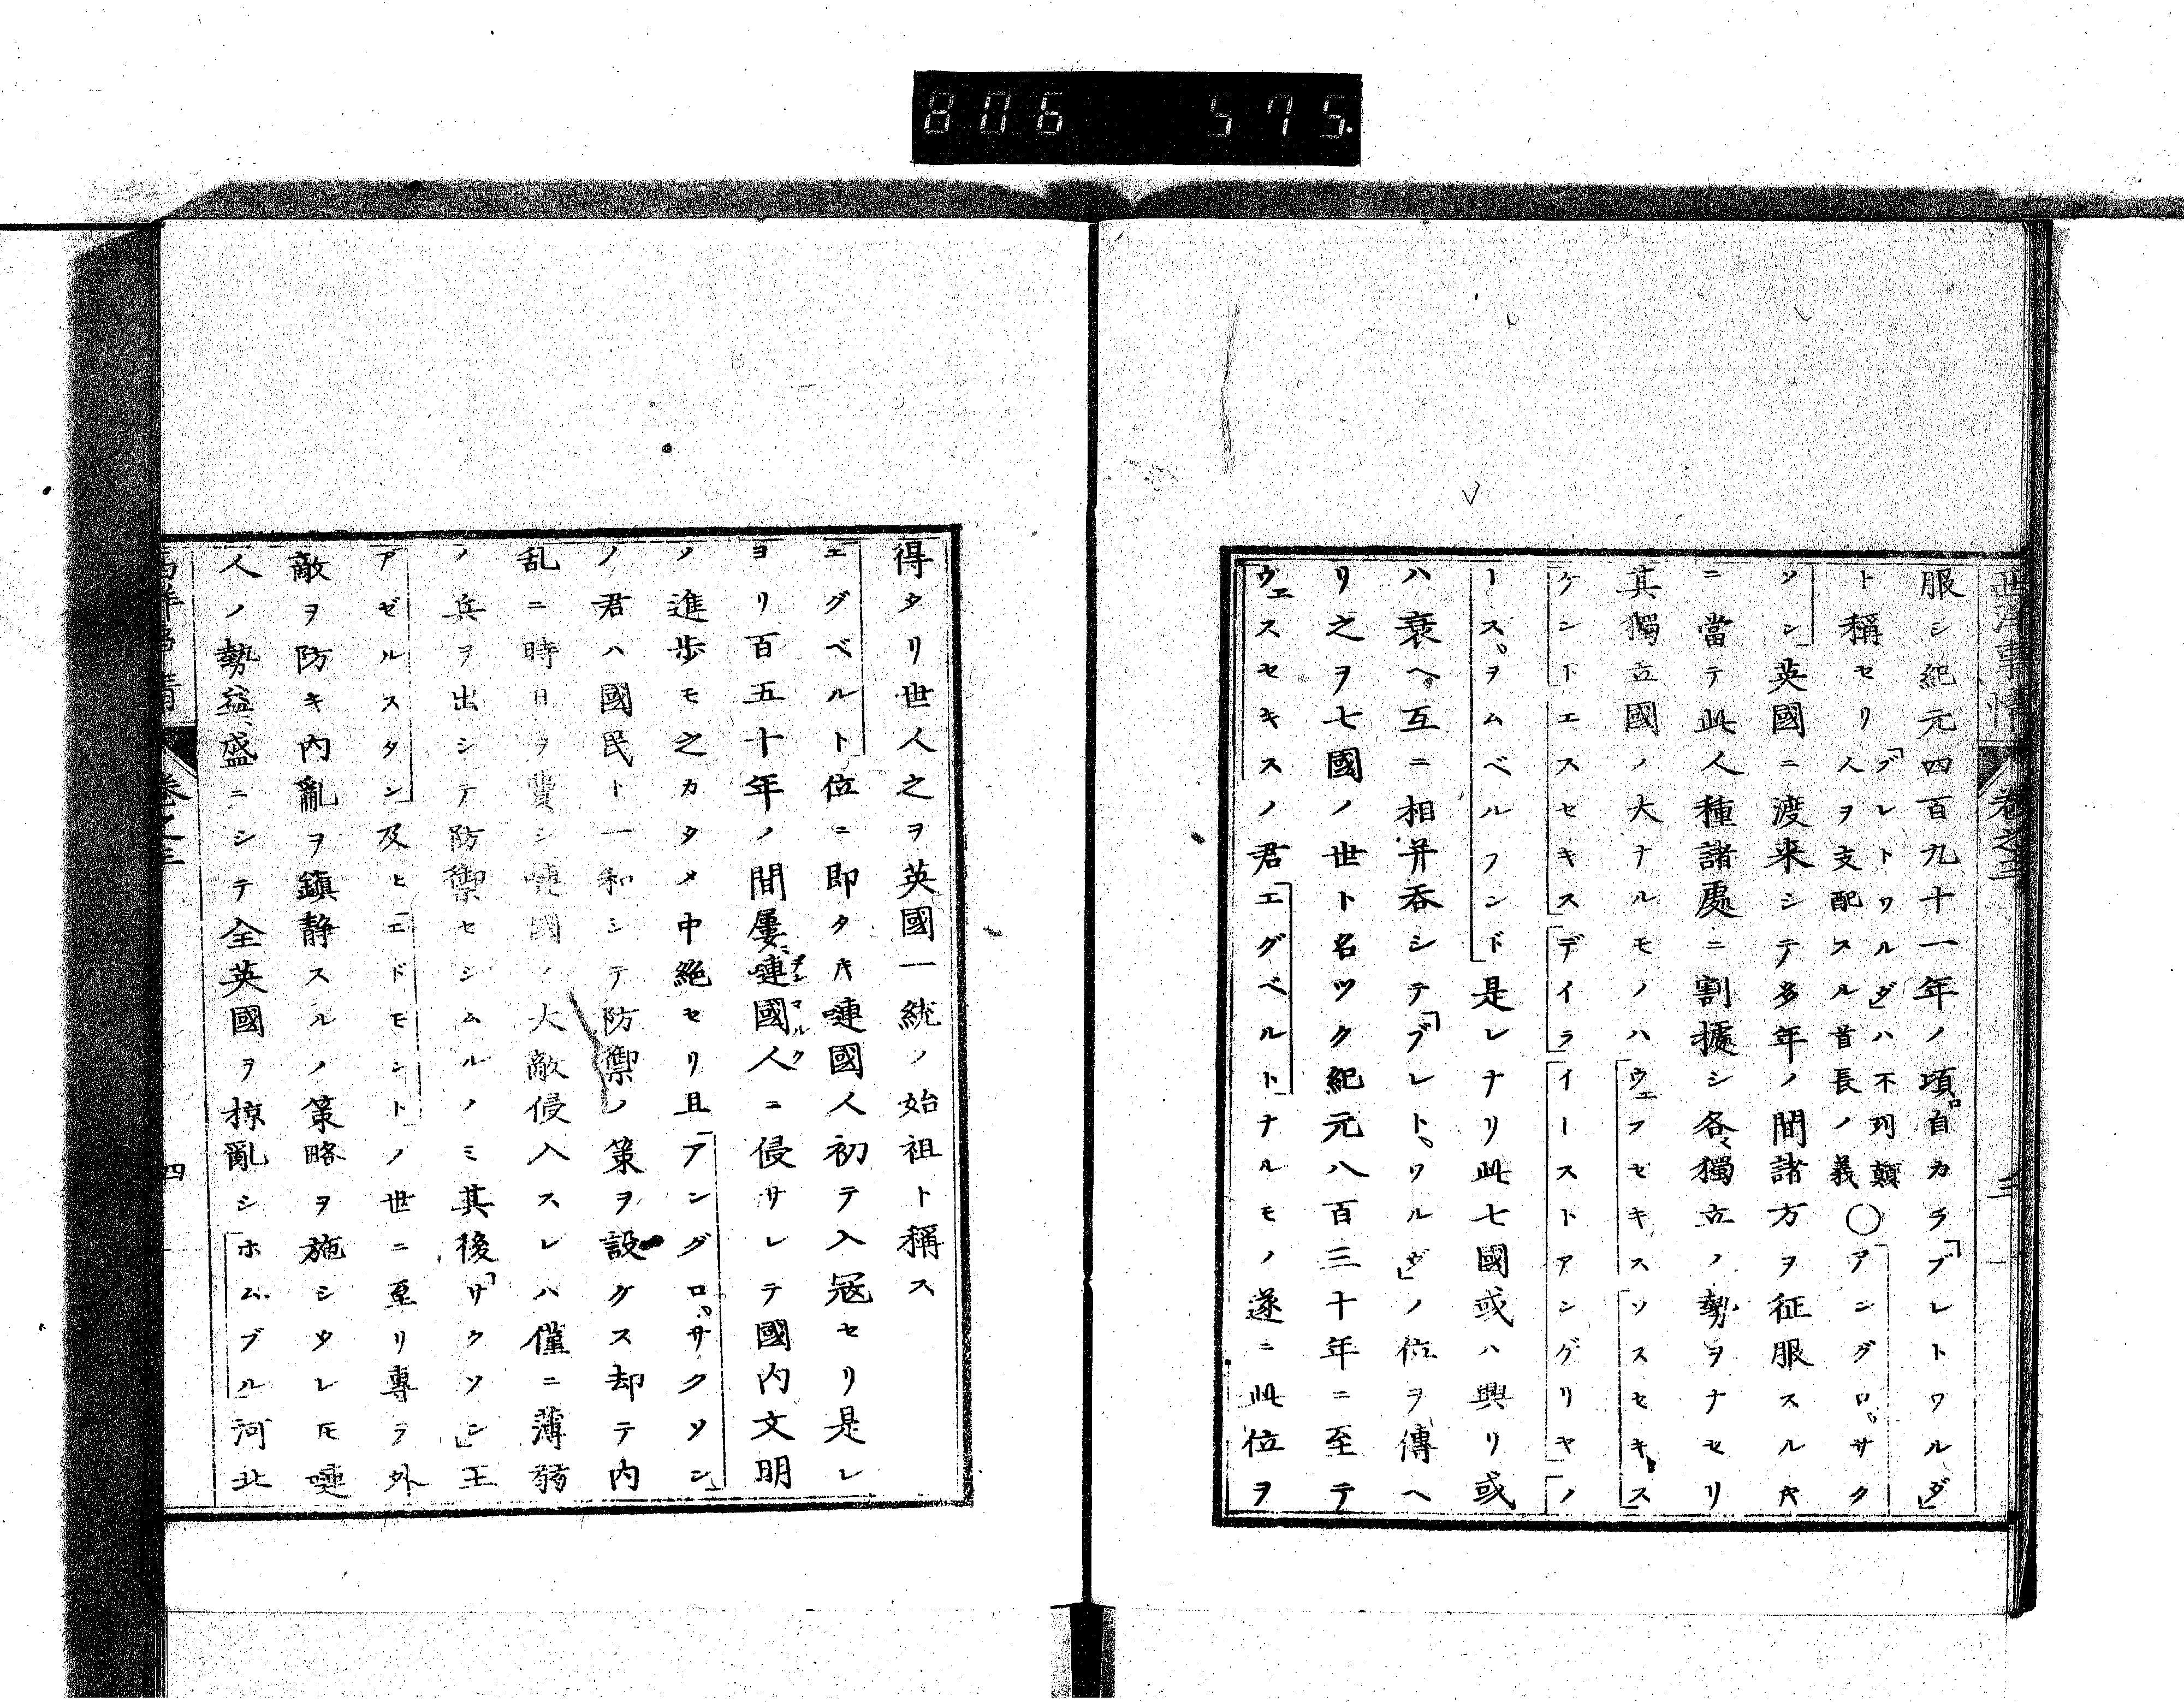 806 575.
西洋事情 卷之三 三
服シ紀元四百九十一年ノ頃自カラ「ブレトワルダ」
ト稱セリ「ブレトワルダ」ハ不列顛
人ヲ支配スル首長ノ義〇アングロ、サク
ソン英國ニ渡来シテ多年ノ間諸方ヲ征服スルキ
ニ當テ此人種諸處ニ割據シ各獨立ノ勢ヲナセリ
其獨立國ノ大ナルモノハウエフセキスソスセキス
ケントエスセキスデイライーストアングリヤノ
ースヲムベルフンド是レナリ此七國或ハ興リ或
ハ衰ヘ互ニ相并吞シテ「ブレト、ワルダ」ノ位ヲ傳ヘ
リ之ヲ七國ノ世ト名ツク紀元八百三十年ニ至テ
ウエスセキスノ君エグベルトナルモノ遂ニ此位ヲ
得タリ世人之ヲ英國一統ノ始祖ト稱ス
エグベルト位ニ即タキ嗹國人初テ入冦セリ是レ
ヨリ百五十年ノ間屢嗹國人ニ侵サレテ國内文明
ノ進歩モ之カタメ中絕セリ且アングロ、サクソン
ノ君ハ國民ト一和シテ防禦ノ策ヲ設ケス却テ内
乱ニ時日ヲ費シ嗹國ノ大敵侵入スレハ僅ニ薄弱
ノ兵ヲ出シテ防禦セシムルノミ其後「サクソン」王
アゼルスタン及ヒエドモントノ世ニ至リ專ラ外
敵ヲ防キ内亂ヲ鎭静スルノ策略ヲ施シタレ𪜈嗹
人ノ勢益盛ニシテ全英國ヲ掠亂シホムブル河北
西洋事情 卷之三 四